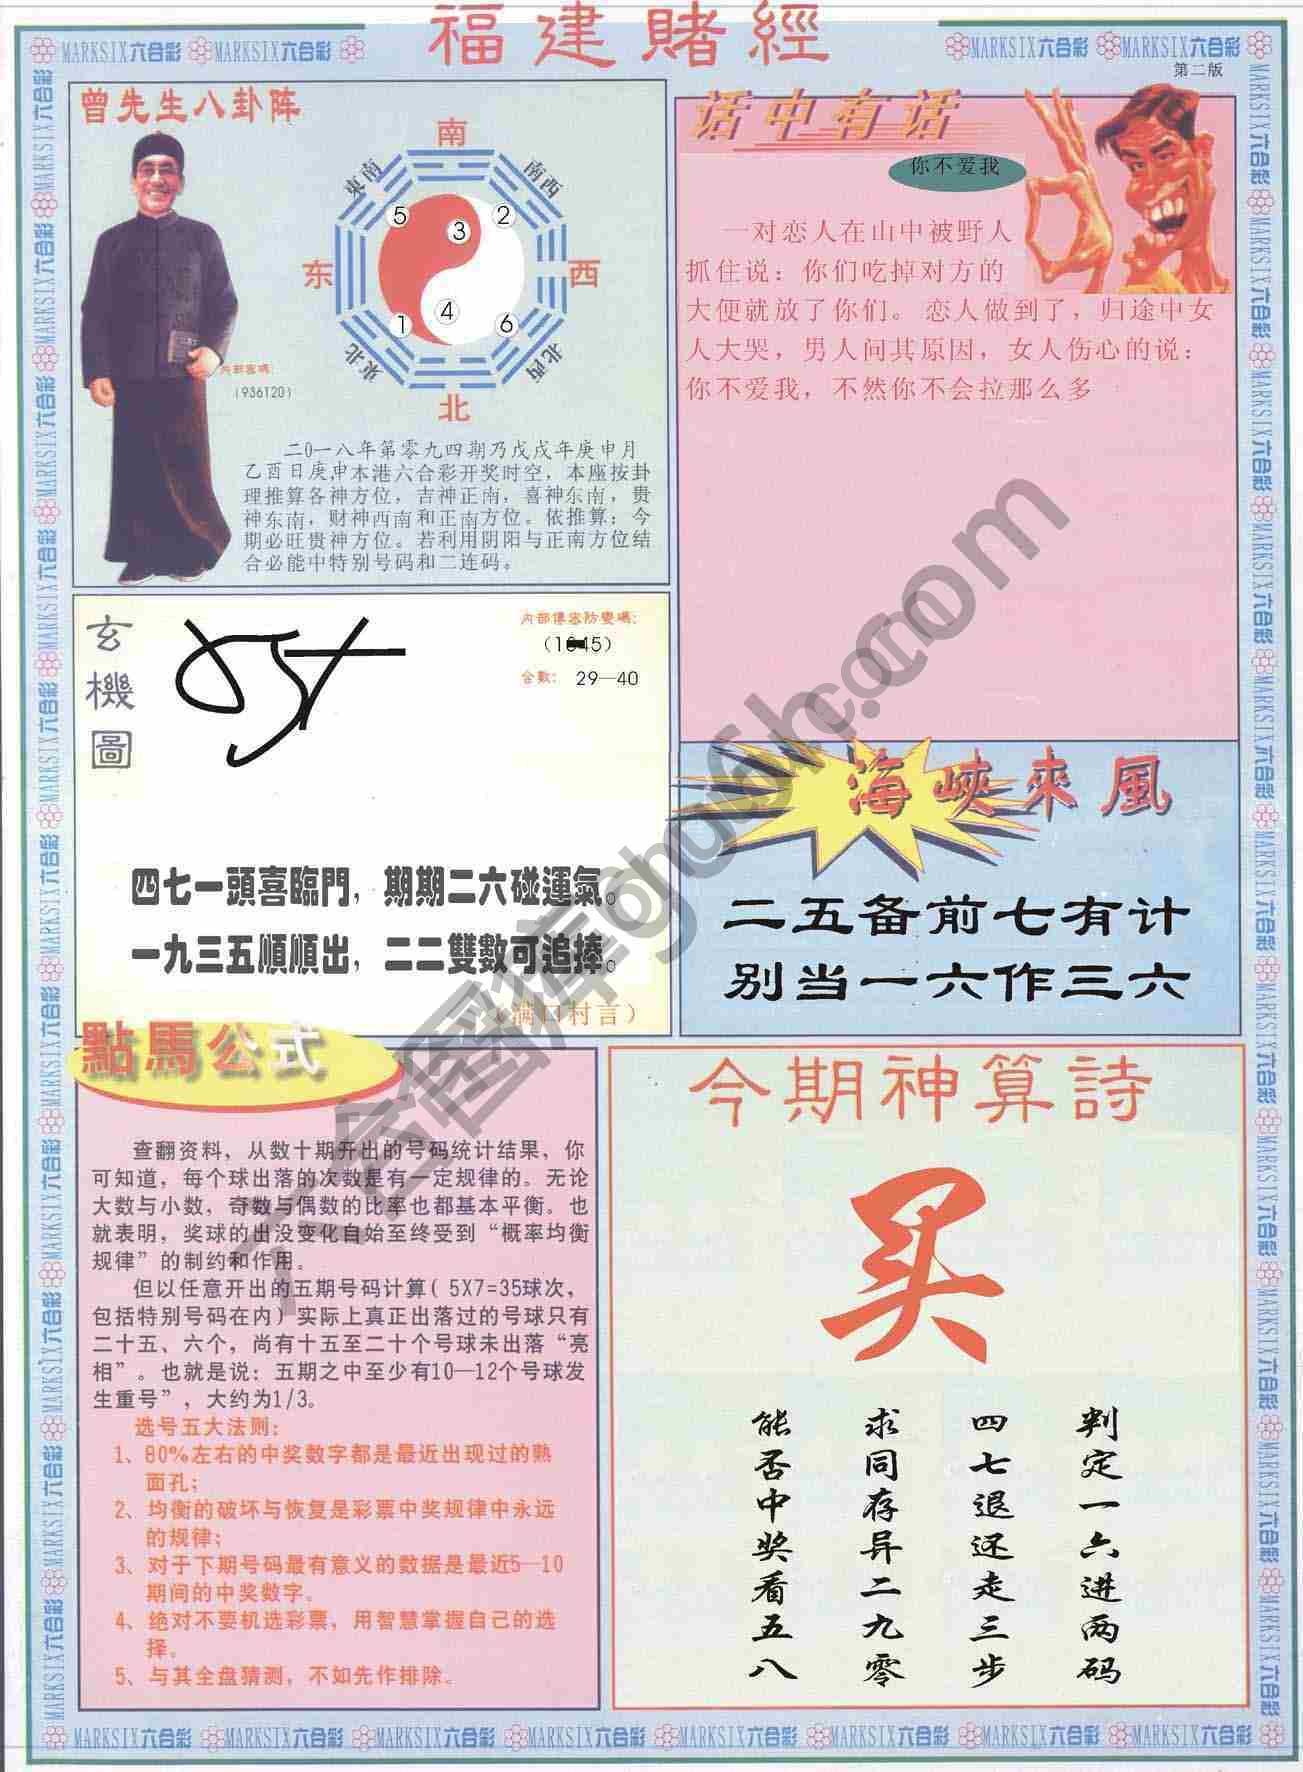 福建賭經
MARKSIX六合彩 MARKSIX六合彩
MARKSIX六合彩 MARKSIX六合彩
第二版
曾先生八卦阵
南
東南
南西
5
3
2
东
西
1
4
6
東北
北西
北
内部密碼:
(936120)
二0一八年第零九四期乃戊戌年庚申月
乙酉日庚申本港六合彩开奖时空，本座按卦
理推算各神方位，吉神正南，喜神东南，贵
神东南，财神西南和正南方位。依推算：今
期必旺贵神方位。若利用阴阳与正南方位结
合必能中特别号码和二连码。
话中有话
你不爱我
一对恋人在山中被野人
抓住说：你们吃掉对方的
大便就放了你们。恋人做到了，归途中女
人大哭，男人问其原因，女人伤心的说：
你不爱我，不然你不会拉那么多
玄機圖
合數： 29—40
四七一頭喜臨門，期期二六碰運氣。
一九三五順順出，二二雙數可追捧。
（满口村言）
海峽來風
二五备前七有计
别当一六作三六
點馬公式
查翻资料，从数十期开出的号码统计结果，你
可知道，每个球出落的次数是有一定规律的。无论
大数与小数，奇数与偶数的比率也都基本平衡。也
就表明，奖球的出没变化自始至终受到“概率均衡
规律”的制约和作用。
但以任意开出的五期号码计算（5X7=35球次，
包括特别号码在内）实际上真正出落过的号球只有
二十五、六个，尚有十五至二十个号球未出落“亮
相”。也就是说：五期之中至少有10—12个号球发
生重号”，大约为1/3。
选号五大法则：
1、80%左右的中奖数字都是最近出现过的熟
面孔；
2、均衡的破坏与恢复是彩票中奖规律中永远
的规律；
3、对于下期号码最有意义的数据是最近5—10
期间的中奖数字。
4、绝对不要机选彩票，用智慧掌握自己的选
择。
5、与其全盘猜测，不如先作排除。
今期神算詩
买
判定一六进两码
四七退还走三步
求同存异二九零
能否中奖看五八
MARKSIX六合彩 MARKSIX六合彩 MARKSIX六合彩 MARKSIX六合彩 MARKSIX六合彩 MARKSIX六合彩 MARKSIX六合彩 MARKSIX六合彩